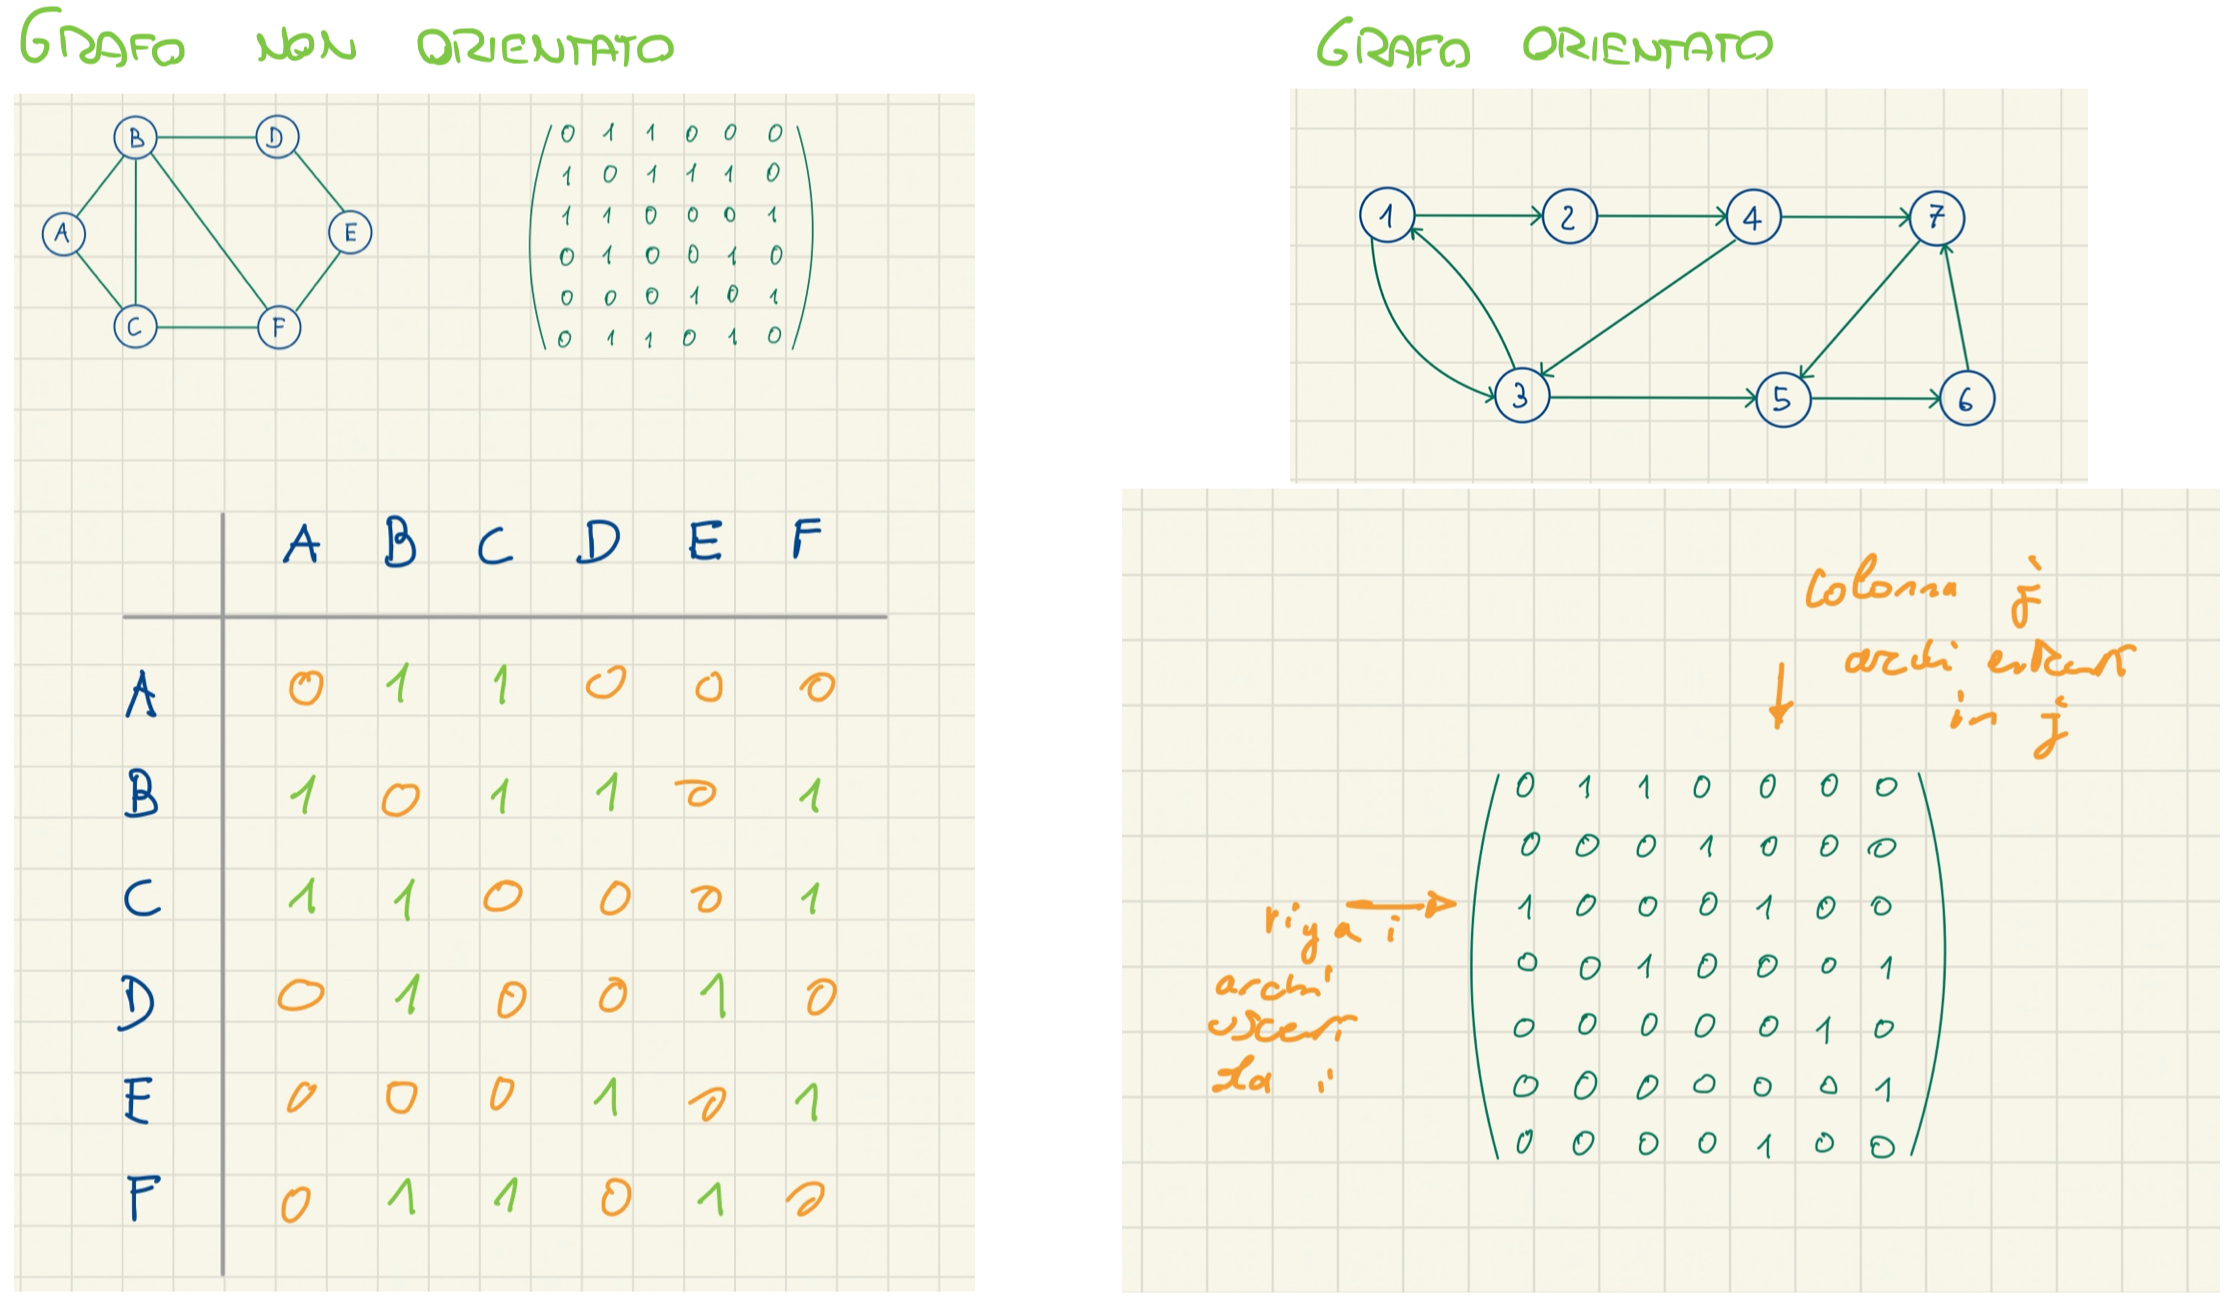 GRAFO NON ORIENTATO
B D
A E
C F
0 1 1 0 0 0
1 0 1 1 1 0
1 1 0 0 0 1
0 1 0 0 1 0
0 0 0 1 0 1
0 1 1 0 1 0
A B C D E F
A 0 1 1 0 0 0
B 1 0 1 1 0 1
C 1 1 0 0 0 1
D 0 1 0 0 1 0
E 0 0 0 1 0 1
F 0 1 1 0 1 0
GRAFO ORIENTATO
1 2 4 7
3 5 6
colonna j
archi entranti
in j
riga i
archi
uscenti
da i
0 1 1 0 0 0 0
0 0 0 1 0 0 0
1 0 0 0 1 0 0
0 0 1 0 0 0 1
0 0 0 0 0 1 0
0 0 0 0 0 0 1
0 0 0 0 1 0 0